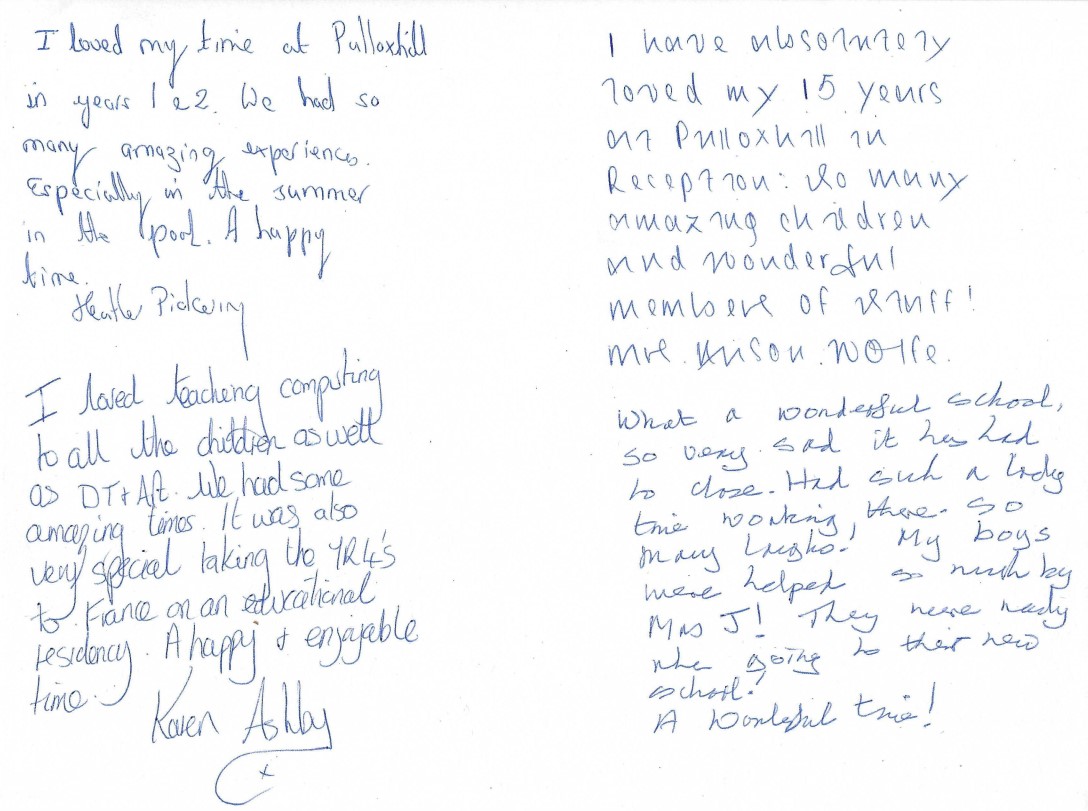 I loved my time at Pulloxhill
in years 1 & 2. We had so
many amazing experiences.
Especially in the summer
in the pool. A happy
time.
Heather Pickering
I loved teaching computing
to all the children as well
as DT & Art. We had some
amazing times. It was also
very special taking the YR4's
to France on an educational
residency. A happy & enjoyable
time.
Karen Ashby
x
I have absolutely
loved my 15 years
at Pulloxhill in
Reception: So many
amazing children
and wonderful
members of staff!
Mrs. Alison. Wolfe.
What a wonderful school,
so very sad it has had
to close. Had such a lovely
time working there. So
many laughs! My boys
were helped so much by
Mrs J! They were ready
when going to their new
school!
A wonderful time!